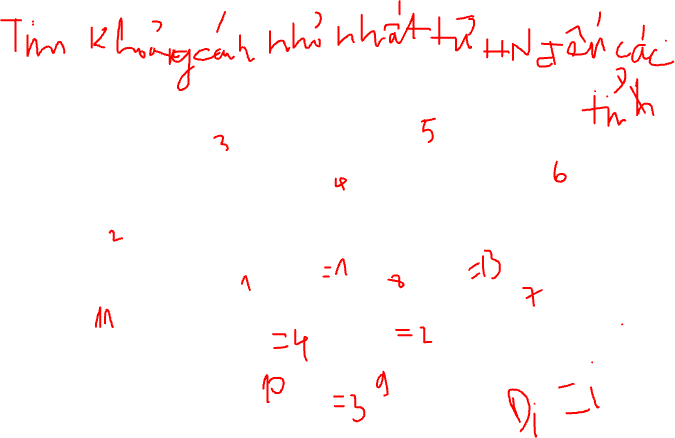 Tìm khoảng cách nhỏ nhất từ HN đến các
tỉnh
3 5
4 6
2
1 =1 8 =13 7
11
=4 =2
10 =3 9 Di = i